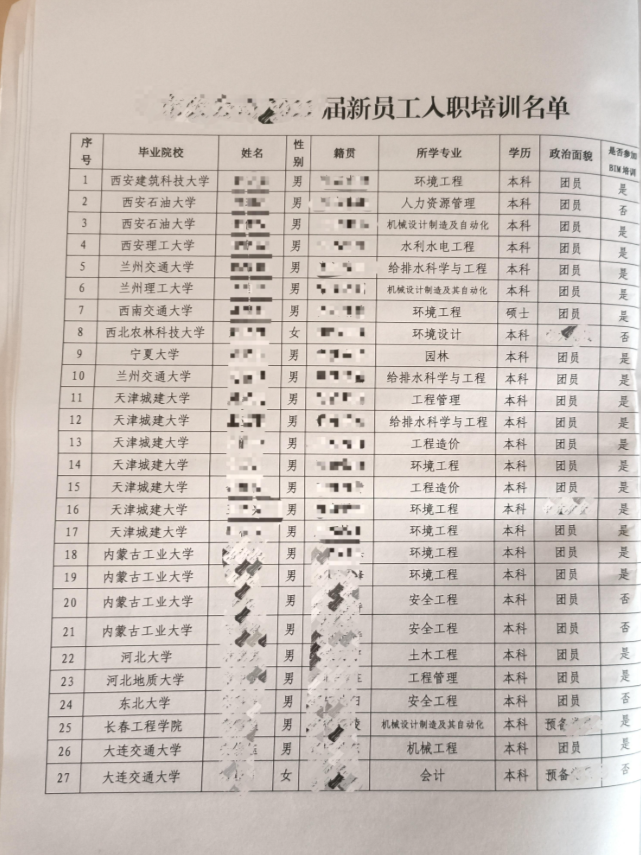 届新员工入职培训名单
序号 毕业院校 姓名 性别 籍贯 所学专业 学历 政治面貌 是否参加BIM培训
1 西安建筑科技大学 男 环境工程 本科 团员 是
2 西安石油大学 男 人力资源管理 本科 团员 否
3 西安石油大学 男 机械设计制造及自动化 本科 团员 是
4 西安理工大学 男 水利水电工程 本科 团员 是
5 兰州交通大学 男 给排水科学与工程 本科 团员 是
6 兰州理工大学 男 机械设计制造及其自动化 本科 团员 是
7 西南交通大学 男 环境工程 硕士 团员 是
8 西北农林科技大学 女 环境设计 本科 否
9 宁夏大学 男 园林 本科 团员 是
10 兰州交通大学 男 给排水科学与工程 本科 团员 是
11 天津城建大学 男 工程管理 本科 团员 是
12 天津城建大学 男 给排水科学与工程 本科 团员 是
13 天津城建大学 男 工程造价 本科 团员 是
14 天津城建大学 男 环境工程 本科 团员 是
15 天津城建大学 男 工程造价 本科 团员 是
16 天津城建大学 男 环境工程 本科 是
17 天津城建大学 男 环境工程 本科 团员 是
18 内蒙古工业大学 男 环境工程 本科 团员 是
19 内蒙古工业大学 男 环境工程 本科 团员 是
20 内蒙古工业大学 男 安全工程 本科 团员 否
21 内蒙古工业大学 男 安全工程 本科 团员 否
22 河北大学 男 土木工程 本科 团员 是
23 河北地质大学 男 工程管理 本科 团员 是
24 东北大学 男 安全工程 本科 团员 否
25 长春工程学院 男 机械设计制造及其自动化 本科 预备 是
26 大连交通大学 男 机械工程 本科 团员 是
27 大连交通大学 女 会计 本科 预备 否